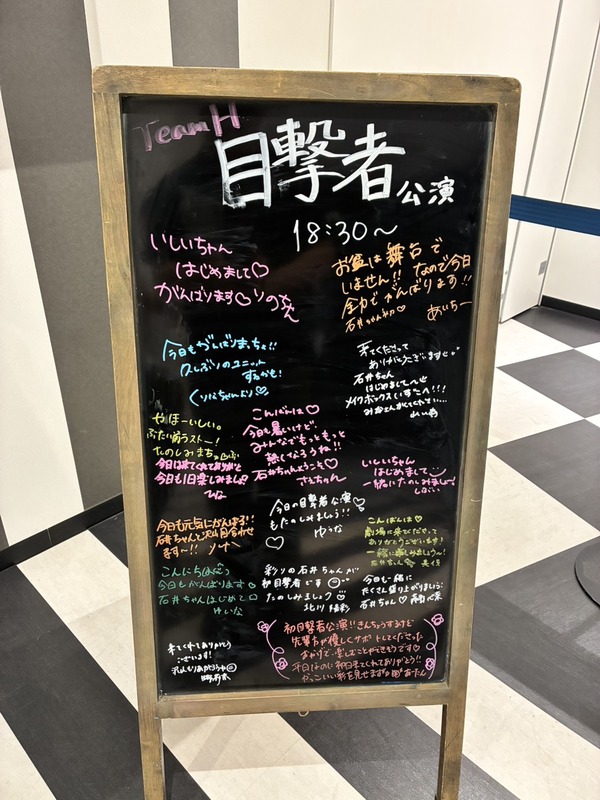 Team H
目撃者公演
18:30〜
いしいちゃん
はじめまして♡
がんばります♡りの
お盆は舞台で
いません!! なので今日
全力でがんばります!!
石井ちゃん初♡ あいちー
今日もがんばりまっちょ!!
久しぶりのユニット
するかも!
来てくださって
ありがとうございます
石井ちゃん
はじめまして
メイクボックス
やほーいしい。
ラストー!
たのしみまちょ
今日は来てくれてありがと
今日も1日楽しみましょ
ひな
こんばんは♡
今日も暑いけど、
みんなでもっともっと
熱くなろうね!!
石井ちゃんようこそ♡
さえちゃん
いしいちゃん
はじめまして
一緒にたのしみましょ
今日の目撃者公演
もたのしみましょう!!
ゆうな
♡
今日も元気にがんばる!!
石井ちゃんと沢山目合わせ
ます〜!!
こんばんは♡
劇場に来てくださって
ありがとうございます!
一緒に楽しみましょう
こんにちは
今日もがんばります♡
石井ちゃんはじめて
ゆいな
彩りの石井ちゃんが
初目撃者です
たのしみましょ♡
北川
今日も一緒に
たくさん盛り上がりましょう!
石井ちゃん♡
来てくれてありがとう
ございます!
初目撃者公演!! きんちょうするけど
先輩方が優しくサポートしてくださった
おかげで、楽しむことができそうです♡
平日なのに初日来てくれてありがとう!!
かっこいい姿を見せますね